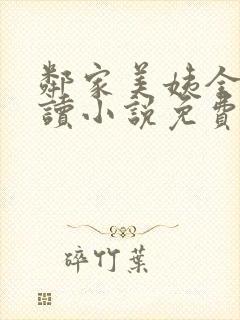 鄰家美姨全
讀小說免費
碎竹葉